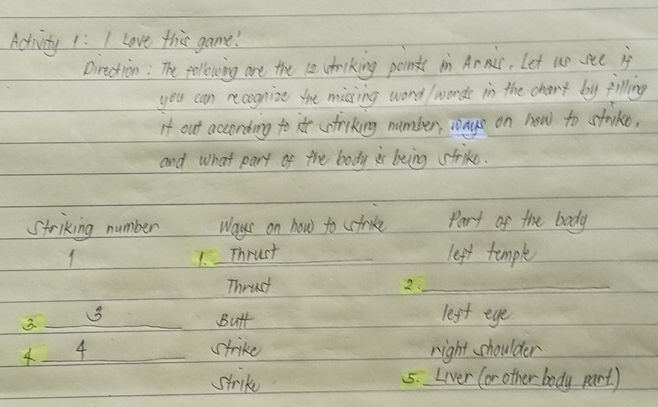 Activity 1: I Love this game!
Direction: The following are the 12 striking points in Arnis. Let us see if
you can recognize the missing word/words in the chart by filling
it out according to its striking number, ways on how to strike,
and what part of the body is being strike.
Striking number Ways on how to strike Part of the body
1 1. Thrust left temple
Thrust 2.
3. 3 Butt left eye
4. 4 strike right shoulder
strike 5. Liver (or other body part)